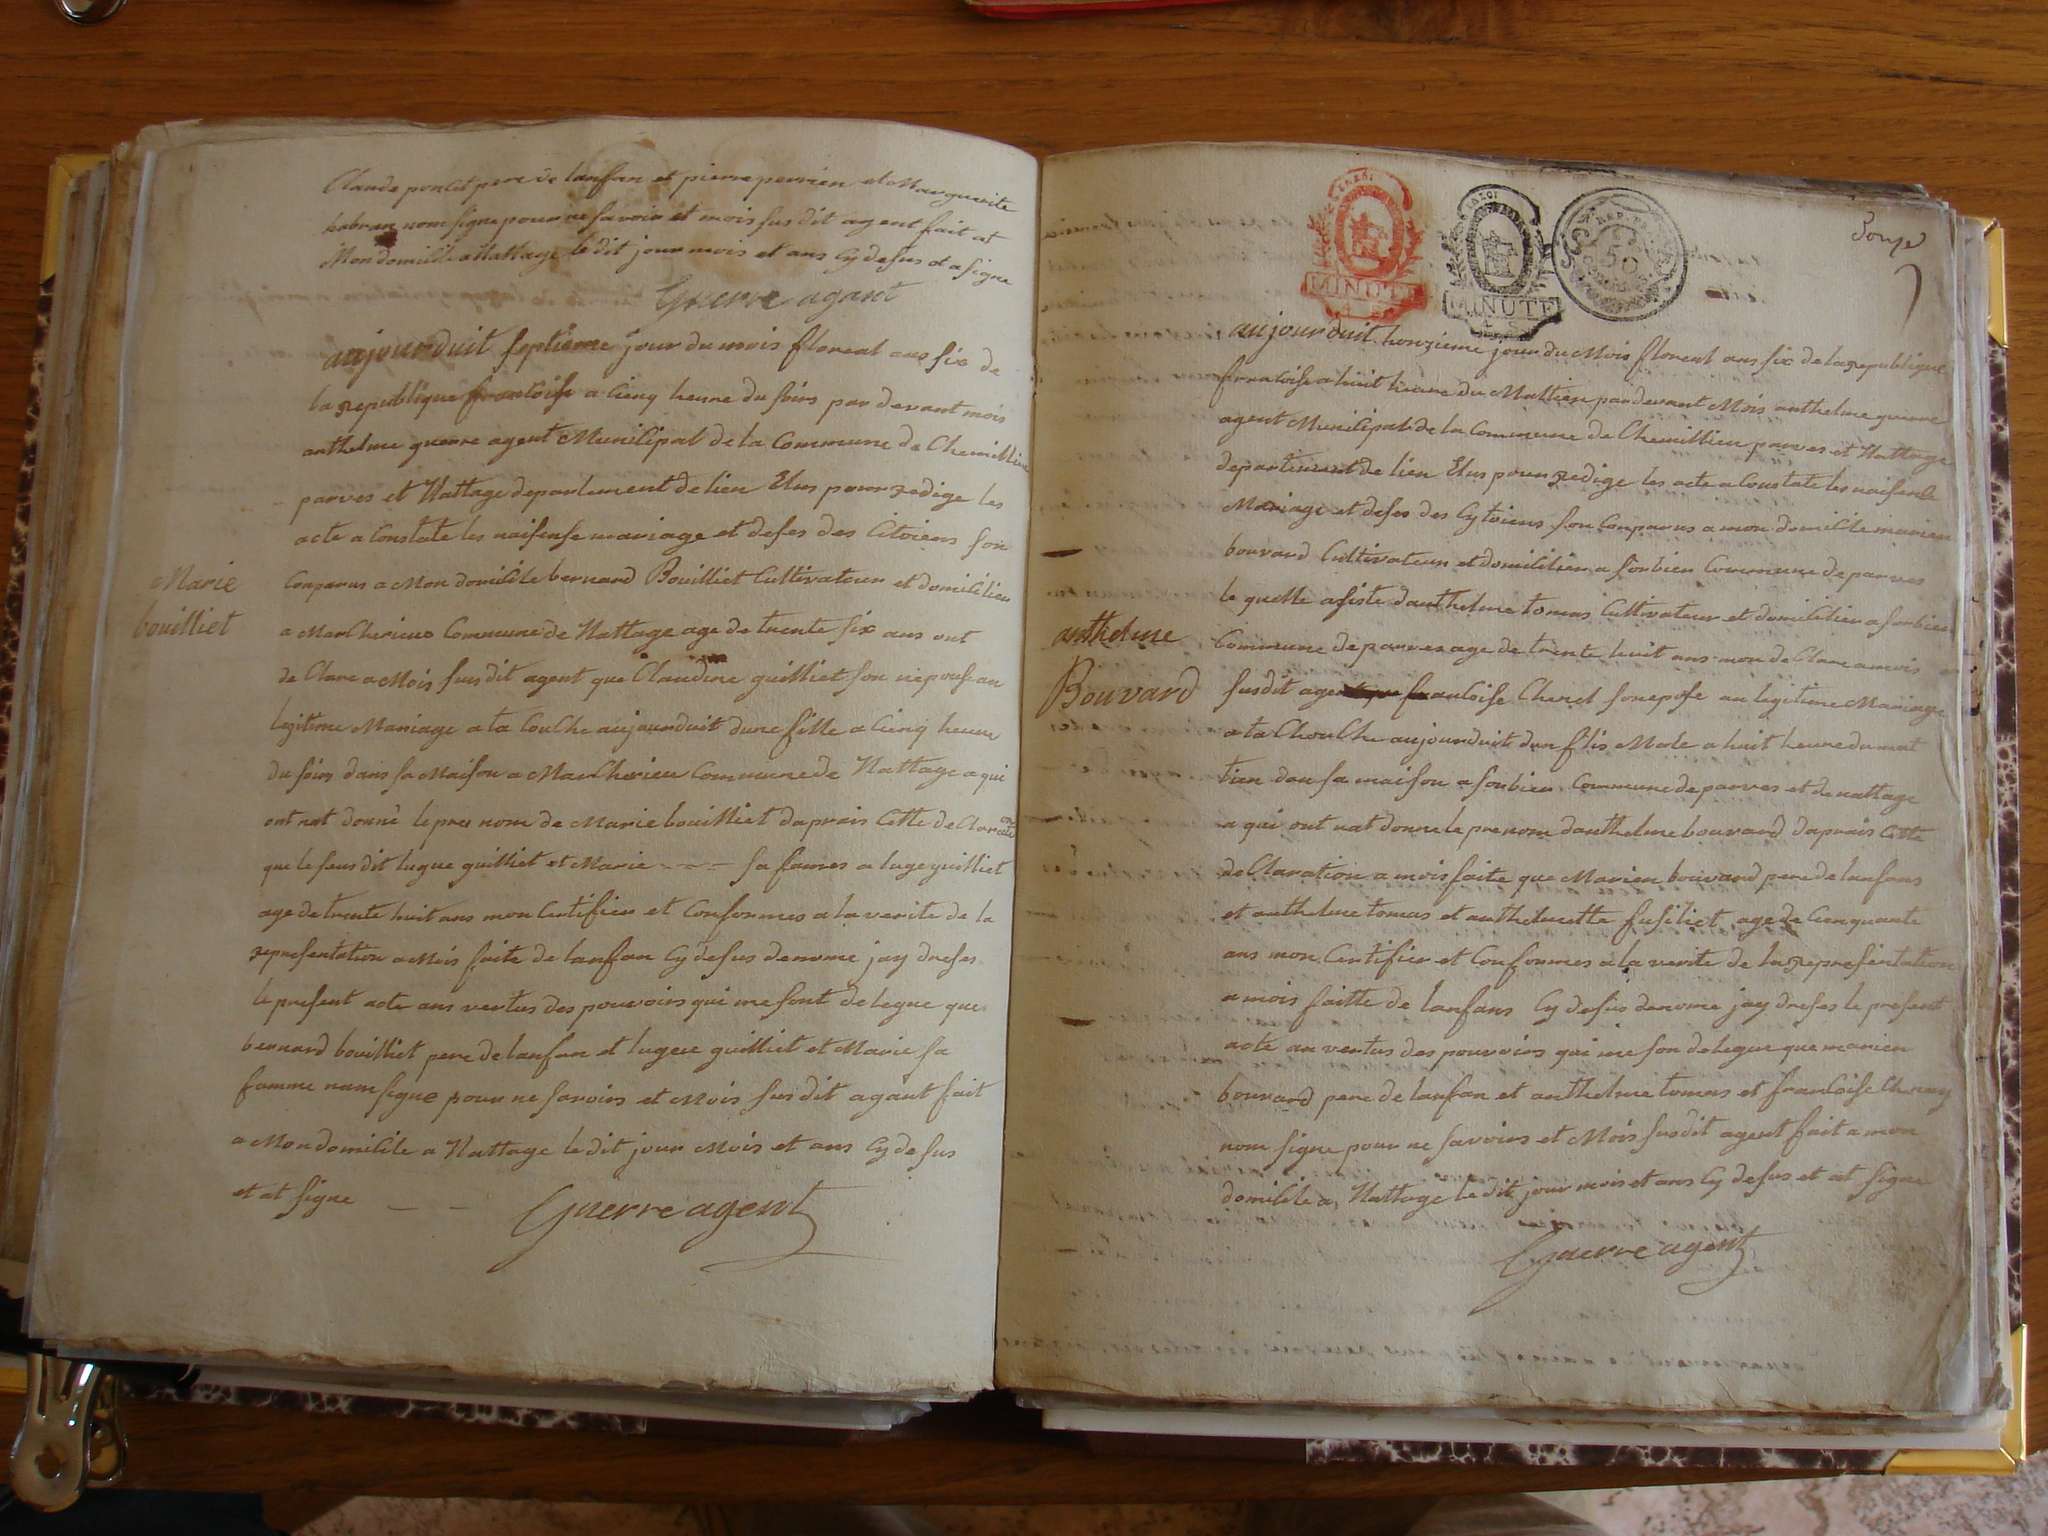 Claude poncet pere de lanfan et pierre perrien et Marguerite
nom signe pour ne savoir et mois sus dit agent fait at
Mon domicile a Nattage le dit jour mois et ans Cy desus et a signe
Guerre agant
aujourduit septieme jour du mois floreal ans six de
la republique francoise a cienq heure du soirs par devant mois
anthelme guerre agent Municipal de la Commune de Chemillieu
parves et Nattage departement de lien Elus pour redige les
acte a Constate les naisense mariage et deses des Citoiens son
Conparus a Mon domicile bernard Bouilliet Cultivateur et domicilien
a Marcherieu Commune de Nattage age de trente six ans ont
de Clare a Mois susdit agent que Claudine guilliet son nepouse an
legitime Mariage a ta Couche aujourduit dune fille a Cienq heure
du soirs dans sa Maison a Marcherieu Commune de Nattage a qui
ont nat donné le pre nom de Marie bouilliet daprais Cette de Claration
que le susdit lugue guilliet et Marie - - - sa fames a luge guilliet
age de trente huit ans mon Certifier et Conformes a la verite de la
representation a Mois faite de lanfan Cy desus denome jay dreses
le present acte ans vertus des pouvoirs qui me sont delegue que
bernard bouilliet pere de lanfan et lugue guilliet et Marie sa
famme nom signe pour ne savoirs et Mois susdit agant fait
a Mon domicile a Nattage le dit jour Mois et ans Cy desus
et at signe - - Guerre agent
Marie
bouilliet
MINUTE
MINUTE
50
aujourduit honzieme jour du Mois floreal ans six de la republique
francoise a huit heure du Mattien par devant Mois anthelme guerre
agent Municipal de la Commune de Chemillieu parves et Nattage
departement de lien Elus pour redige les acte a Constate les naisense
Mariage et deses des Cytoiens son Conparus a mon domicile marien
bouvard Cultivateur et domicilien a sorbien Commune de parves
le quelle asiste danthelme tomas Cultivateur et domicilien a sorbien
Commune de parves age de trente huit ans mon de Clare a mois
susdit agent francoise Cherel son epose an legitime Mariage
a ta Chouche aujourduit dun flis Male a huit heure du mat
tien dan sa maison a sorbien Commune de parves et de nattage
a qui ont nat donne le prenom danthelme bouvard daprais Cette
de Claration a mois faite que Marien bouvard pere de lanfans
et anthelme tomas et anthelmette fusiliet age de Cienquante
ans mon Certifier et Conformes a la verite de la representation
a mois faitte de lanfans Cy desus denome jay dreses le present
acte an vertus des pouvoirs qui me son delegue que marien
bouvard pere de lanfan et anthelme tomas et francoise Cheray
nom signe pour ne savoirs et Mois susdit agent fait a mon
domicile a Nattage le dit jour mois et ans Cy desus et at signe
Guerre agent
anthelme
Bouvard